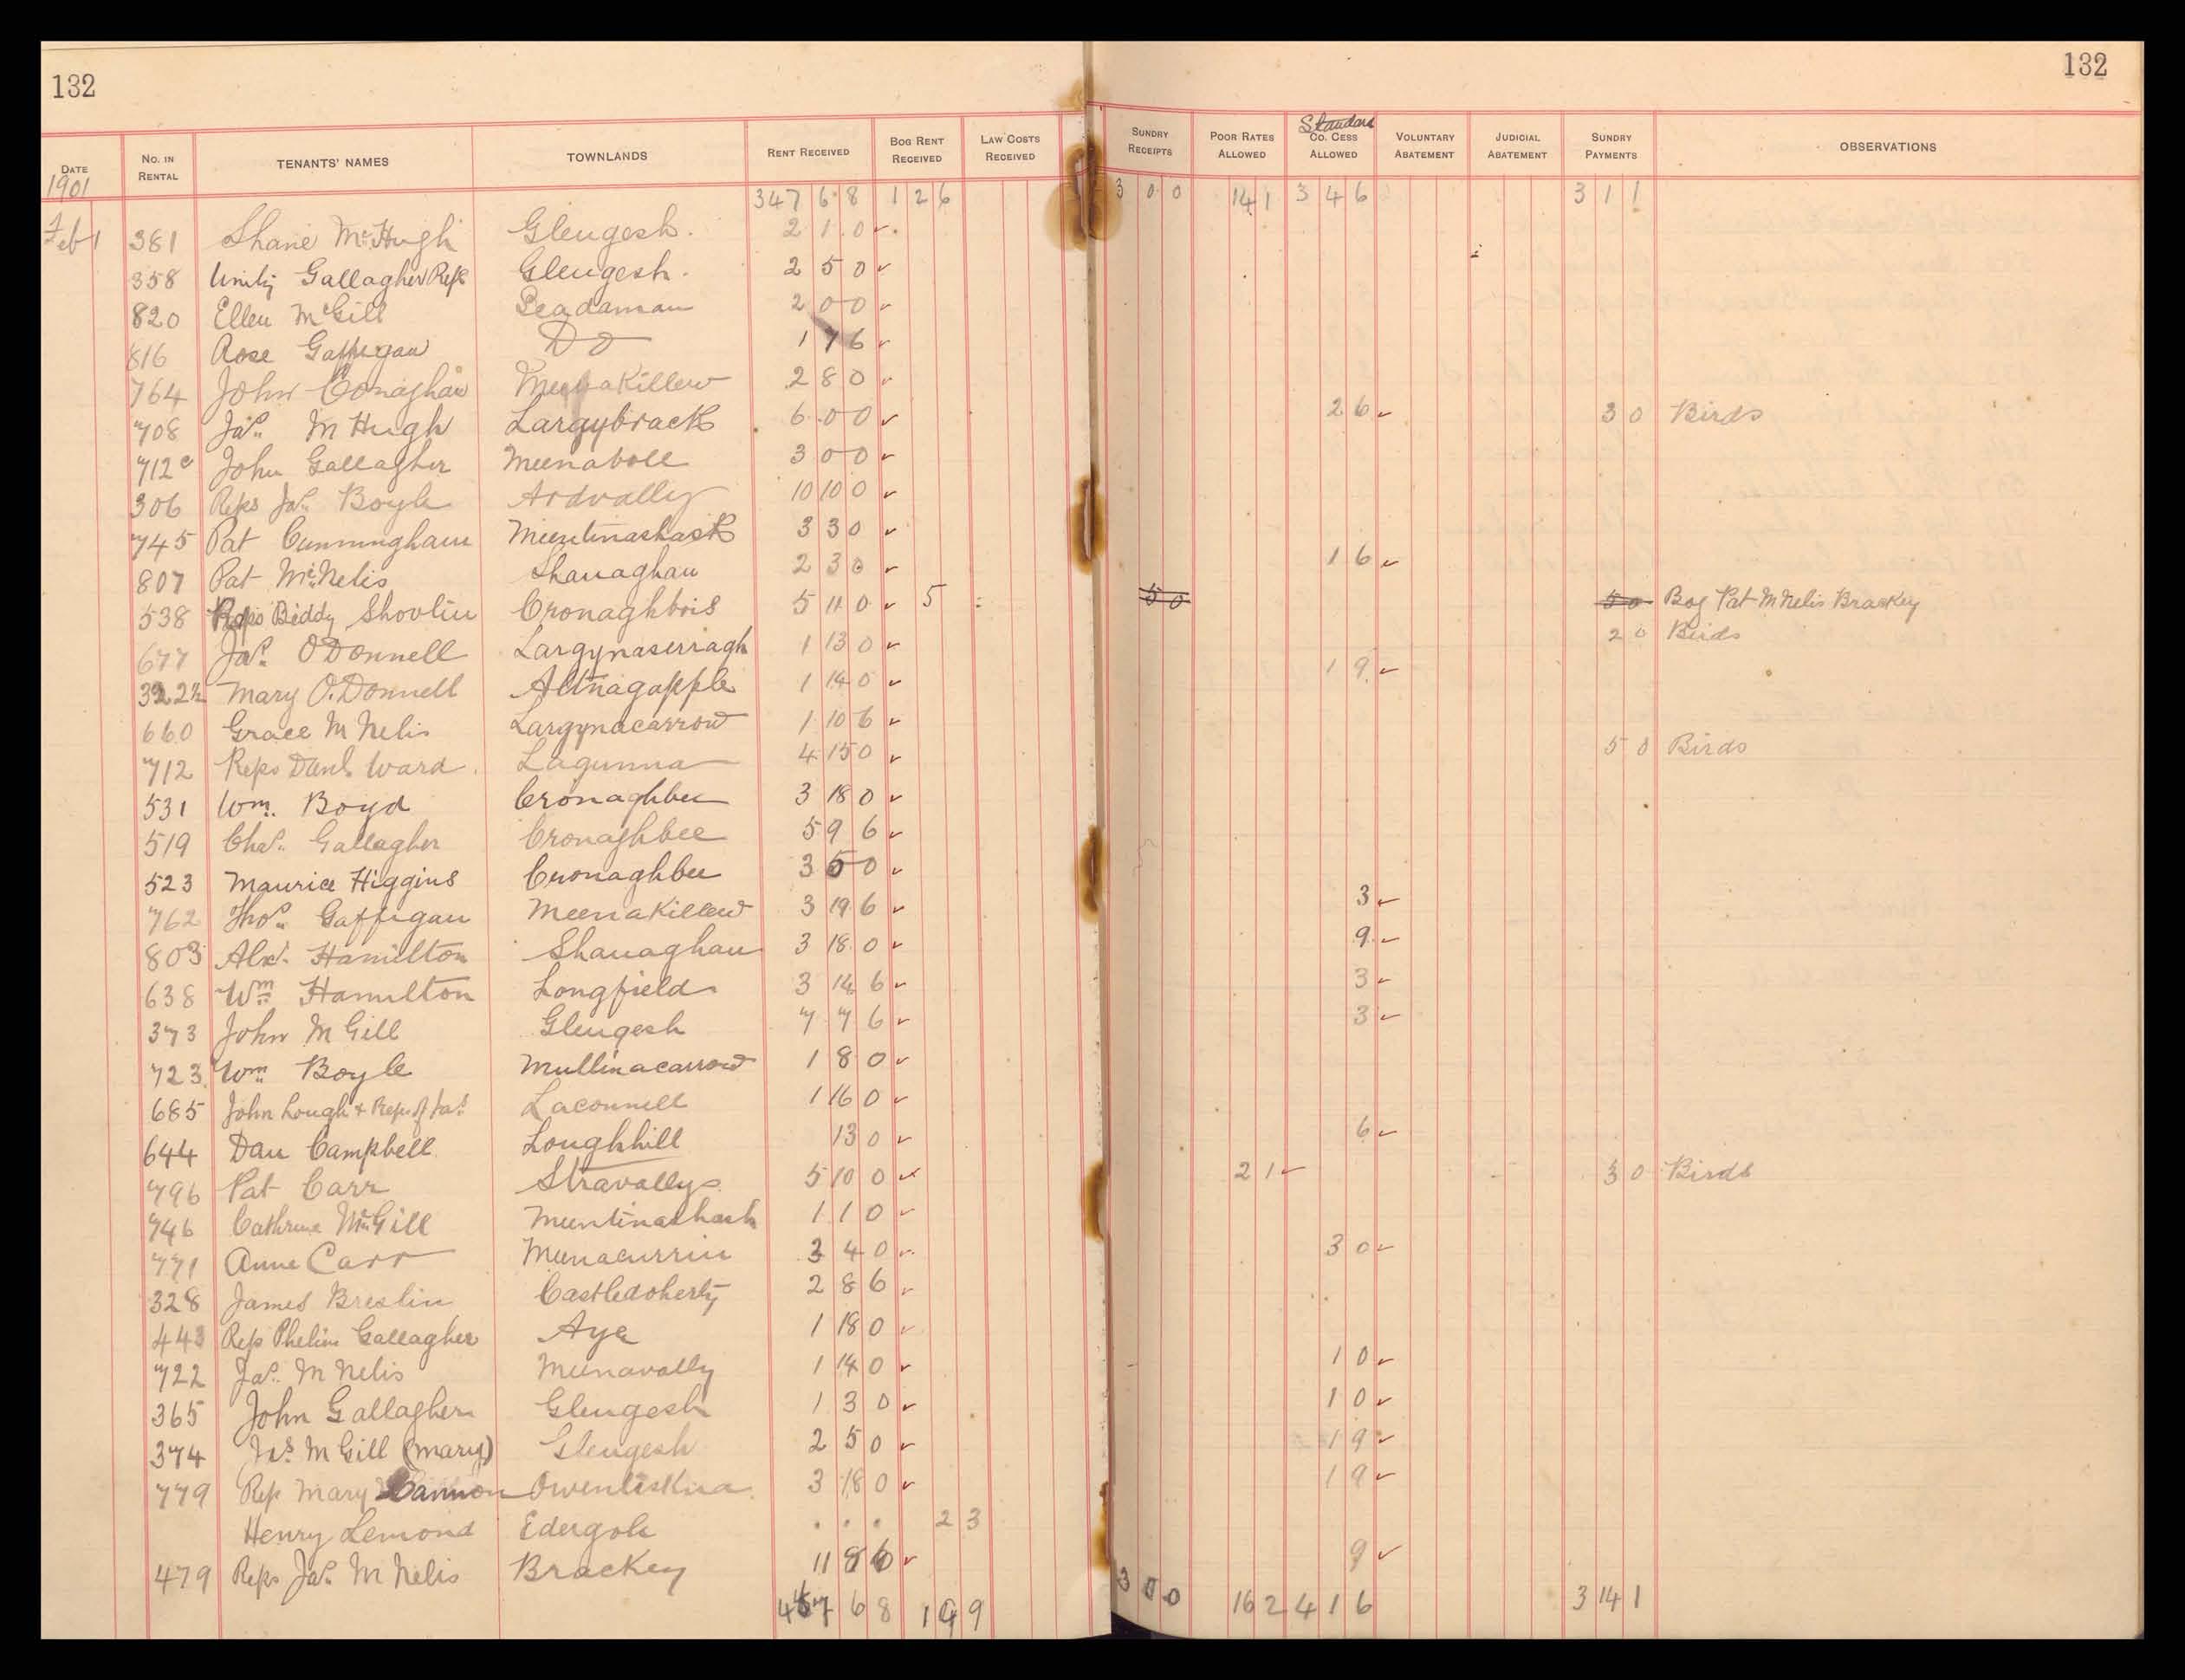 132 132
DATE NO. IN RENTAL TENANTS' NAMES TOWNLANDS RENT RECEIVED BOG RENT RECEIVED LAW COSTS RECEIVED SUNDRY RECEIPTS POOR RATES ALLOWED Standard CO. CESS ALLOWED VOLUNTARY ABATEMENT JUDICIAL ABATEMENT SUNDRY PAYMENTS OBSERVATIONS
1901 347 6 8 1 2 6 3 0 0 14 1 3 4 6 3 1 1
Feb 1 381 Shane McHugh Glengesh 2 1 0
358 Unity Gallagher Reps Glengesh 2 5 0
820 Ellen McGill 2 0 0
816 Rose Gaffigan Do 1 7 6
764 John Conaghan Meenakillew 2 8 0
708 Jas. M Hugh Largybrack 6 0 0 2 6 3 0 Birds
712c John Gallagher Meenaboll 3 0 0
306 Reps Jas. Boyle Ardvally 10 10 0
745 Pat Cunningham Meentinashask 3 3 0
807 Pat McNelis Shanaghan 2 3 0 1 6
538 Reps Biddy Shovlin Cronaghbois 5 11 0 5 5 0 5 0 Bog Pat M Nelis Brackey
677 Jas. O Donnell Largynaserragh 1 13 0 2 0 Birds
322½ Mary O. Donnell Altnagapple 1 14 0 1 9
660 Grace M Nelis Largynacarrow 1 10 6
712 Reps Danl. Ward Lagunna 4 15 0 5 0 Birds
531 Wm. Boyd Cronaghbee 3 18 0
519 Chas. Gallagher Cronaghbee 5 9 6
523 Maurice Higgins Cronaghbee 3 5 0
762 Thos. Gaffigan Meenakillew 3 19 6 3
803 Alxr. Hamilton Shanaghan 3 18 0 9
638 Wm Hamilton Longfield 3 14 6 3
373 John M Gill Glengesh 7 7 6 3
723 Wm. Boyle Mullinacarrow 1 8 0
685 John Lough & Reps of Jas. Laconnell 1 16 0
644 Dan Campbell Loughhill 13 0 6
796 Pat Carr Stravallys 5 10 0 2 1 3 0 Birds
746 Cathrine McGill Meentinashask 1 1 0
771 Anne Carr Meenacurrin 3 4 0 3 0
328 James Breslin Castledoherty 2 8 6
443 Reps Phelim Gallagher Aye 1 18 0
722 Jas. M Nelis Meenavally 1 14 0 1 0
365 John Gallagher Glengesh 1 3 0 1 0
374 Jas. M Gill (Mary) Glengesh 2 5 0 1 9
779 Rep Mary Cannon Owenteskna 3 18 0 1 9
Henry Lemond Edergole . . . 2 3
479 Reps Jas. M Nelis Brackey 11 8 9
457 6 8 1 9 9 3 0 0 16 2 4 1 6 3 14 1